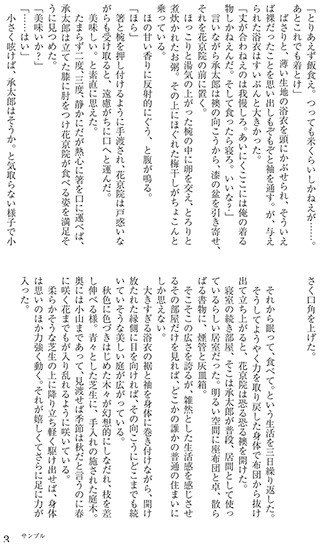 「とりあえず飯食え。つっても米くらいしかねえが……。
あとこれでも着とけ」
ばさりと、薄い生地の浴衣を頭にかぶせられ、そういえ
ば裸だったことを思い出しもぞもぞと袖を通す。が、与え
られた浴衣はずいぶんと大きかった。
「丈が合わねえのは我慢しろ。あいにくここには俺の着る
物しかねえんだ。そして食ったら寝ろ。いいな?」
言いながら承太郎は襖の向こうから、漆の盆を引き寄せ、
それを花京院の前に置く。
ほっこりと湯気の上がった椀の中に卵を交え、とろりと
煮炊かれたお粥。その上にほぐれた梅干しがちょこんと
乗っている。
ほの甘い香りに反射的にぐう、と腹が鳴る。
「ほら」
箸と椀を押し付けるように手渡され、花京院は戸惑いな
がらも受け取ると、遠慮がちに口へと運んだ。
美味しい。と素直に思えた。
たまらず二度、三度、静かにだが熱心に箸を口に運べば、
承太郎は立てた膝に肘をつけ花京院が食べる姿を満足そ
うに見つめた。
「美味いか?」
「……はい」
小さく呟けば、承太郎はそうか。と気取らない様子で小
さく口角を上げた。
それから眠って、食べて。という生活を三日繰り返した。
そうしてようやく力を取り戻した身体で布団から抜け
出て立ち上がると、花京院は恐る恐る襖を開けた。
寝室の続き部屋、そこは承太郎が普段、居間として使っ
ているらしい居室だった。明るい空間に座布団と卓、散ら
ばる書物に、煙管と灰皿箱。
そこそこの広さを誇るが、雑然とした生活感を感じさせ
るその部屋だけを見れば、どこかの誰かの普通の住まいに
しか思えない。
大きすぎる浴衣の裾と袖を身体に巻き付けながら、開け
放たれた縁側に目を向ければ、その向こうにどこまでも続
いていそうな美しい庭が広がっている。
秋色に色づきはじめた木々が幻想的にしなだれ、枝を差
し伸べる様。青々とした芝生に、手入れの施された庭木。
奥には小山まであって、見渡せば季節は秋だと言うのに春
に咲く花までもが入り乱れるように咲いている。
柔らかそうな芝生の上に降り立ち軽く駆け出せば、身体
は思いのほか力強く動く。それが嬉しくてさらに足に力が
入った。
サンプル
3